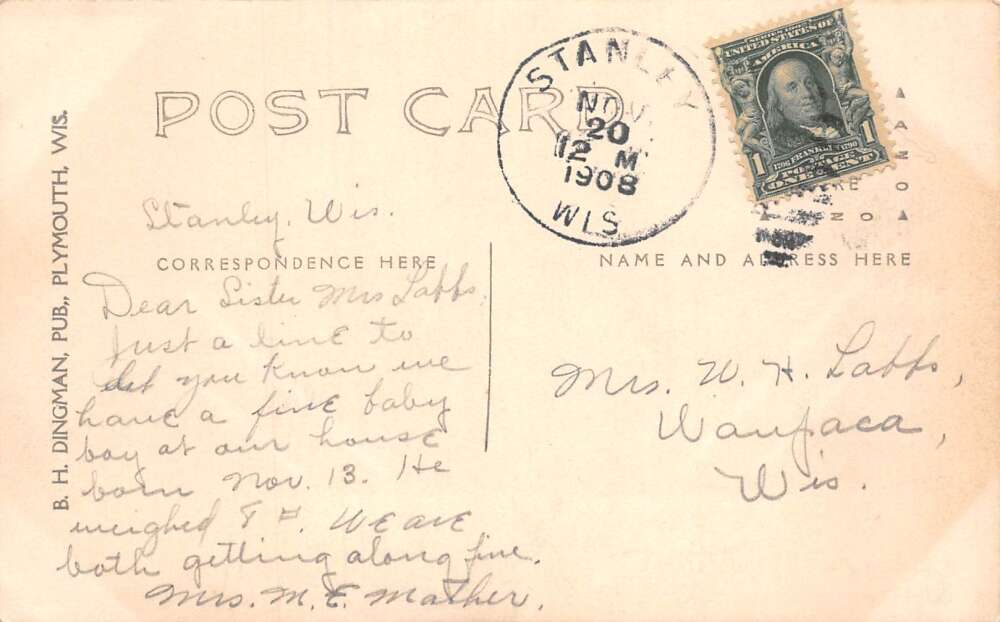 POST CARD
STANLEY
NOV.
20
12 M
1908
WIS.
SERIES 1902
UNITED STATES OF
AMERICA
1706 FRANKLIN 1790
1 POSTAGE 1
ONE CENT
B. H. DINGMAN, PUB., PLYMOUTH, WIS.
Stanley, Wis.
CORRESPONDENCE HERE
Dear Sister Mrs Labbs,
Just a line to
let you know we
have a fine baby
boy at our house
born Nov. 13. He
weighed 8 #. We are
both getting along fine.
Mrs. M. E. Mather.
NAME AND ADDRESS HERE
Mrs. W. H. Labbs,
Waupaca,
Wis.